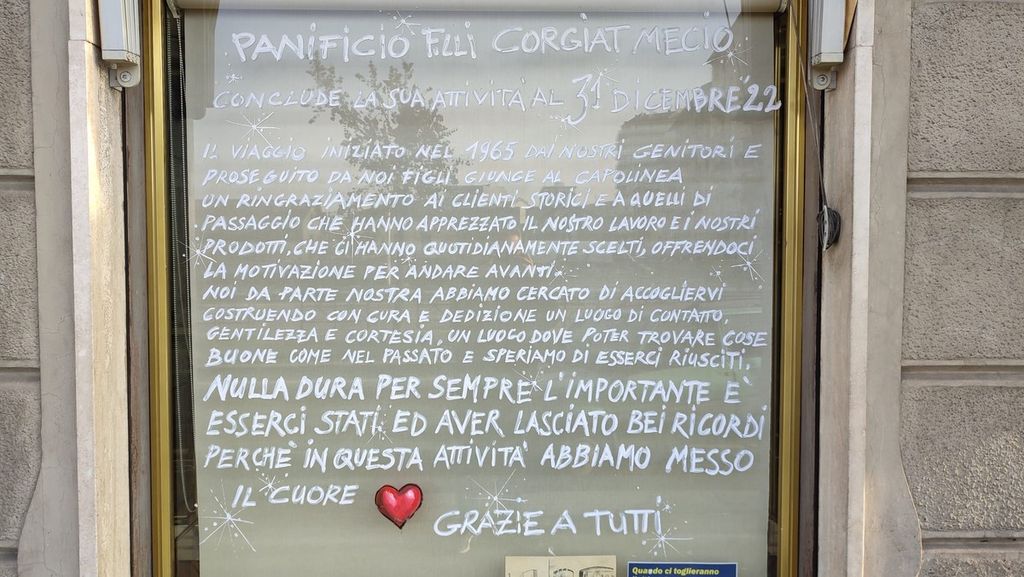 PANIFICIO F.LLI CORGIAT MECIO
CONCLUDE LA SUA ATTIVITA AL 31 DICEMBRE '22
IL VIAGGIO INIZIATO NEL 1965 DAI NOSTRI GENITORI E
PROSEGUITO DA NOI FIGLI GIUNGE AL CAPOLINEA
UN RINGRAZIAMENTO AI CLIENTI STORICI E A QUELLI DI
PASSAGGIO CHE HANNO APPREZZATO IL NOSTRO LAVORO E I NOSTRI
PRODOTTI, CHE CI HANNO QUOTIDIANAMENTE SCELTI, OFFRENDOCI
LA MOTIVAZIONE PER ANDARE AVANTI.
NOI DA PARTE NOSTRA ABBIAMO CERCATO DI ACCOGLIERVI
COSTRUENDO CON CURA E DEDIZIONE UN LUOGO DI CONTATTO,
GENTILEZZA E CORTESIA, UN LUOGO DOVE POTER TROVARE COSE
BUONE COME NEL PASSATO E SPERIAMO DI ESSERCI RIUSCITI.
NULLA DURA PER SEMPRE L'IMPORTANTE E'
ESSERCI STATI ED AVER LASCIATO BEI RICORDI
PERCHÈ IN QUESTA ATTIVITA' ABBIAMO MESSO
IL CUORE
GRAZIE A TUTTI
Quando ci toglieranno